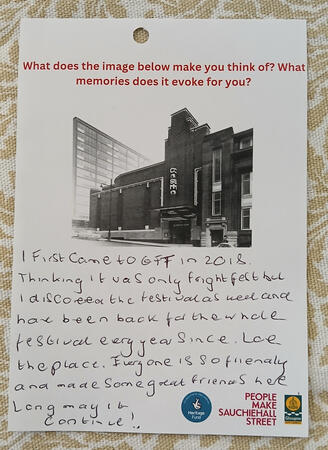 What does the image below make you think of? What
memories does it evoke for you?
I First Came to GFT in 2018.
Thinking it was only frightfest but
I discovered the festival as well and
have been back for the whole
festival every year since. Love
the place. Everyone is so friendly
and made some great friends here
Long may it
Continue!!
Heritage
Fund
PEOPLE
MAKE
SAUCHIEHALL
STREET